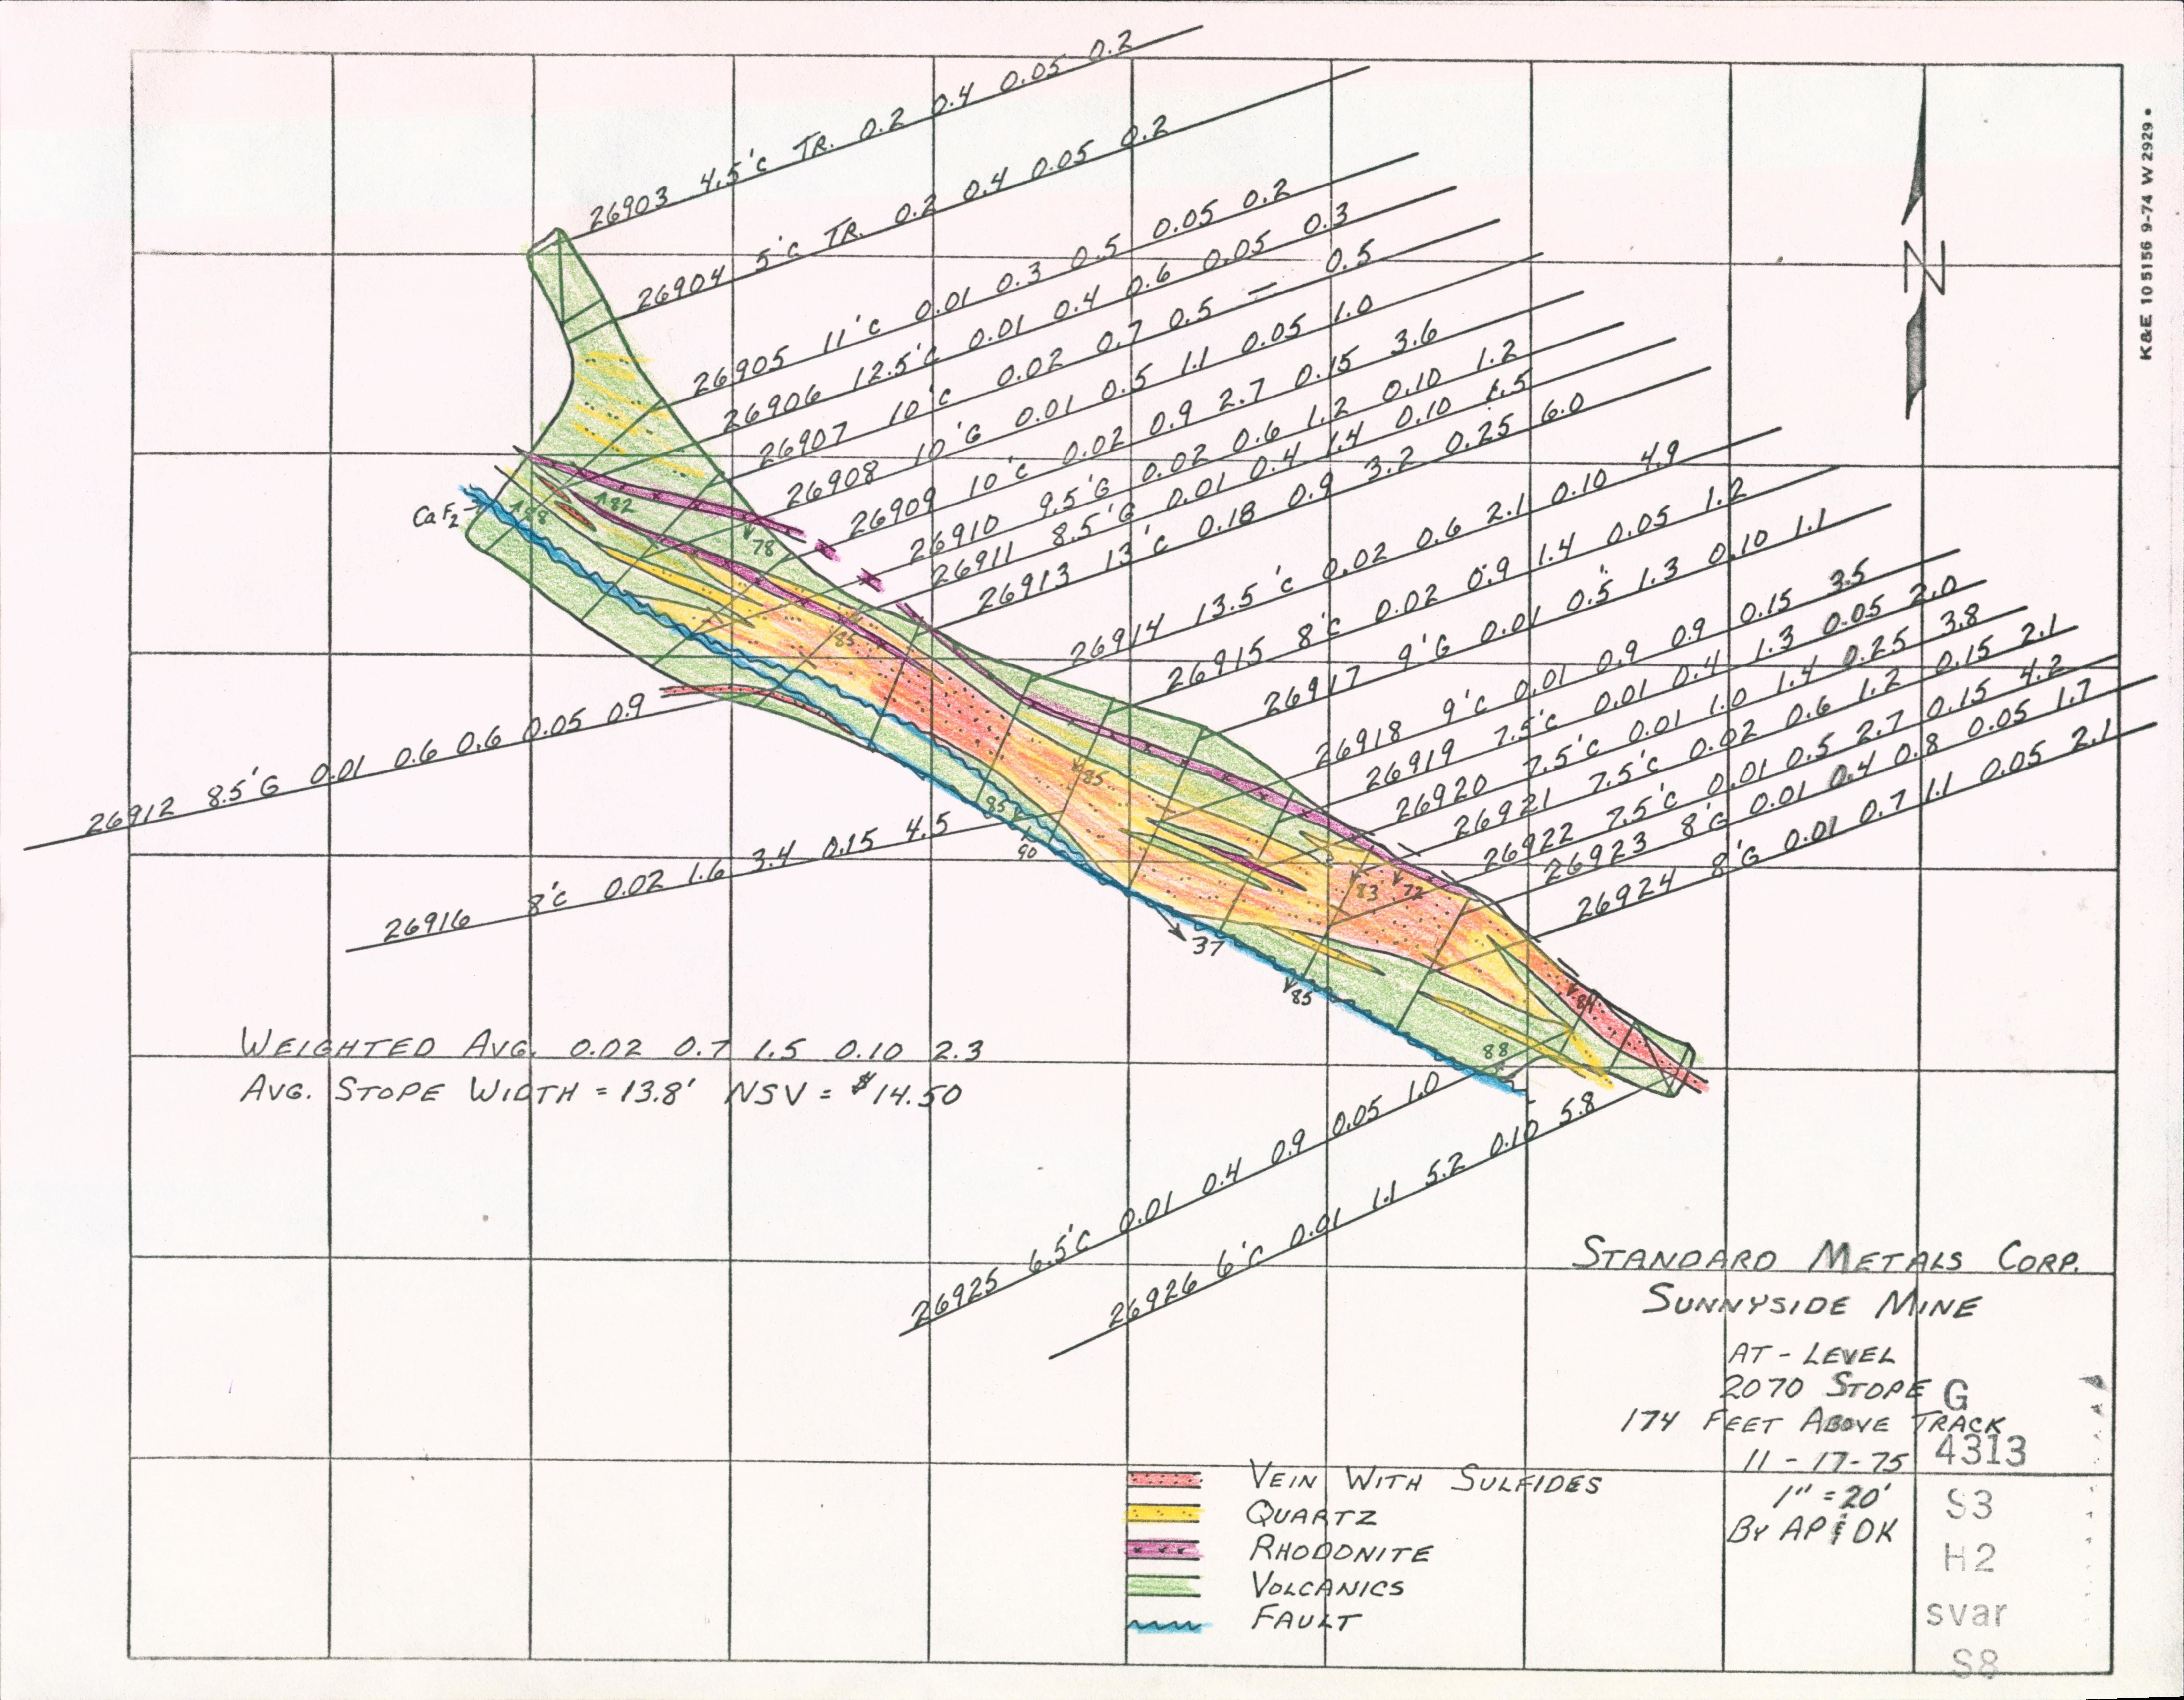 26903 4.5'C TR. 0.2 0.4 0.05 0.2
26904 5'C TR. 0.2 0.4 0.05 0.2
26905 11'C 0.01 0.3 0.5 0.05 0.2
26906 12.5'C 0.01 0.4 0.6 0.05 0.3
26907 10'C 0.02 0.7 0.5 — 0.5
26908 10'G 0.01 0.5 1.1 0.05 1.0
26909 10'C 0.02 0.9 2.7 0.15 3.6
26910 9.5'G 0.02 0.6 1.2 0.10 1.2
26911 8.5'G 0.01 0.4 1.4 0.10 1.5
26913 13'C 0.18 0.9 3.2 0.25 6.0
26914 13.5'C 0.02 0.6 2.1 0.10 4.9
26915 8'C 0.02 0.9 1.4 0.05 1.2
26917 9'G 0.01 0.5 1.3 0.10 1.1
26918 9'C 0.01 0.9 0.9 0.15 3.5
26919 7.5'C 0.01 0.4 1.3 0.05 2.0
26920 7.5'C 0.01 1.0 1.4 0.25 3.8
26921 7.5'C 0.02 0.6 1.2 0.15 2.1
26922 7.5'C 0.01 0.5 2.7 0.15 4.2
26923 8'G 0.01 0.4 0.8 0.05 1.7
26924 8'G 0.01 0.7 1.1 0.05 2.1
N
K&E 10 5156 9-74 W 2929
CaF2
82
78
85
85
85
90
83
72
37
85
84
88
26912 8.5'G 0.01 0.6 0.6 0.05 0.9
26916 8'C 0.02 1.6 3.4 0.15 4.5
WEIGHTED AVG. 0.02 0.7 1.5 0.10 2.3
AVG. STOPE WIDTH = 13.8' NSV = $14.50
26925 6.5'C 0.01 0.4 0.9 0.05 1.0
26926 6'C 0.01 1.1 5.2 0.10 5.8
STANDARD METALS CORP.
SUNNYSIDE MINE
AT-LEVEL
2070 STOPE G
174 FEET ABOVE TRACK
11-17-75 4313
1" = 20' S3
BY AP & DK
H2
svar
S8
VEIN WITH SULFIDES
QUARTZ
RHODONITE
VOLCANICS
FAULT